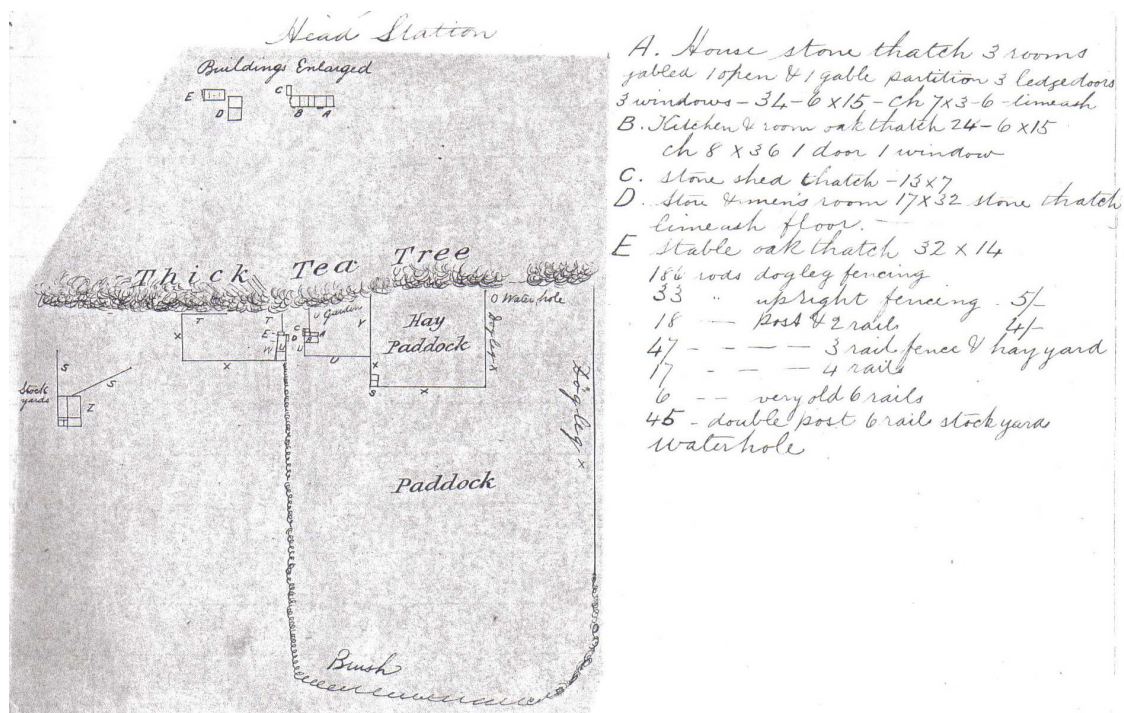 Head Station
Buildings Enlarged
E
D
C
B A
Thick Tea Tree
O Water hole
U Garden
Hay
Paddock
T
T
E
D
C
A
B
W
U
U
U
V
X
X
X
S
dogleg X
Dogleg X
Stock
yards
S
S
Z
Paddock
Brush
A. House stone thatch 3 rooms
gabled 1 open & 1 gable partition 3 ledgedoors
3 windows - 34-6 x 15 - ch 7x3-6 - limeash
B. Kitchen & room oak thatch 24-6 x 15
ch 8 x 36 1 door 1 window
C. stone shed thatch - 13x7
D. Store & men's room 17x32 stone thatch
limeash floor. -
E Stable oak thatch 32 x 14
186 rods dogleg fencing
33 " upright fencing 5/-
18 — Post & 2 rails 4/-
47 - - - - 3 rail fence & hay yard
17 - - - 4 rails
6 - - very old 6 rails
45 - double post 6 rails stockyards
Waterhole